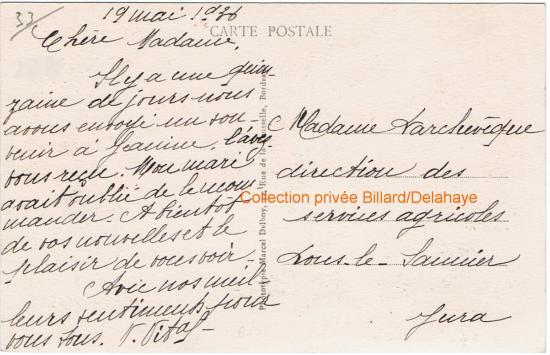 33
19 mai 1936
CARTE POSTALE
Chère Madame,
Il y a une quin-
zaine de jours nous
avons envoyé un sou-
venir à Jeanine. L'avez
vous reçu. Mon mari
avait oublié de le recom
mander. A bientôt
de vos nouvelles et le
plaisir de vous voir.
Avec nos meil
leurs sentiments pour
vous tous. V. Vital
Phototypie Marcel Delboy, Rue de la Bordeaux
Madame Larchevêque
direction des
services agricoles
Lons-le-Saunier
Jura
Collection privée Billard/Delahaye